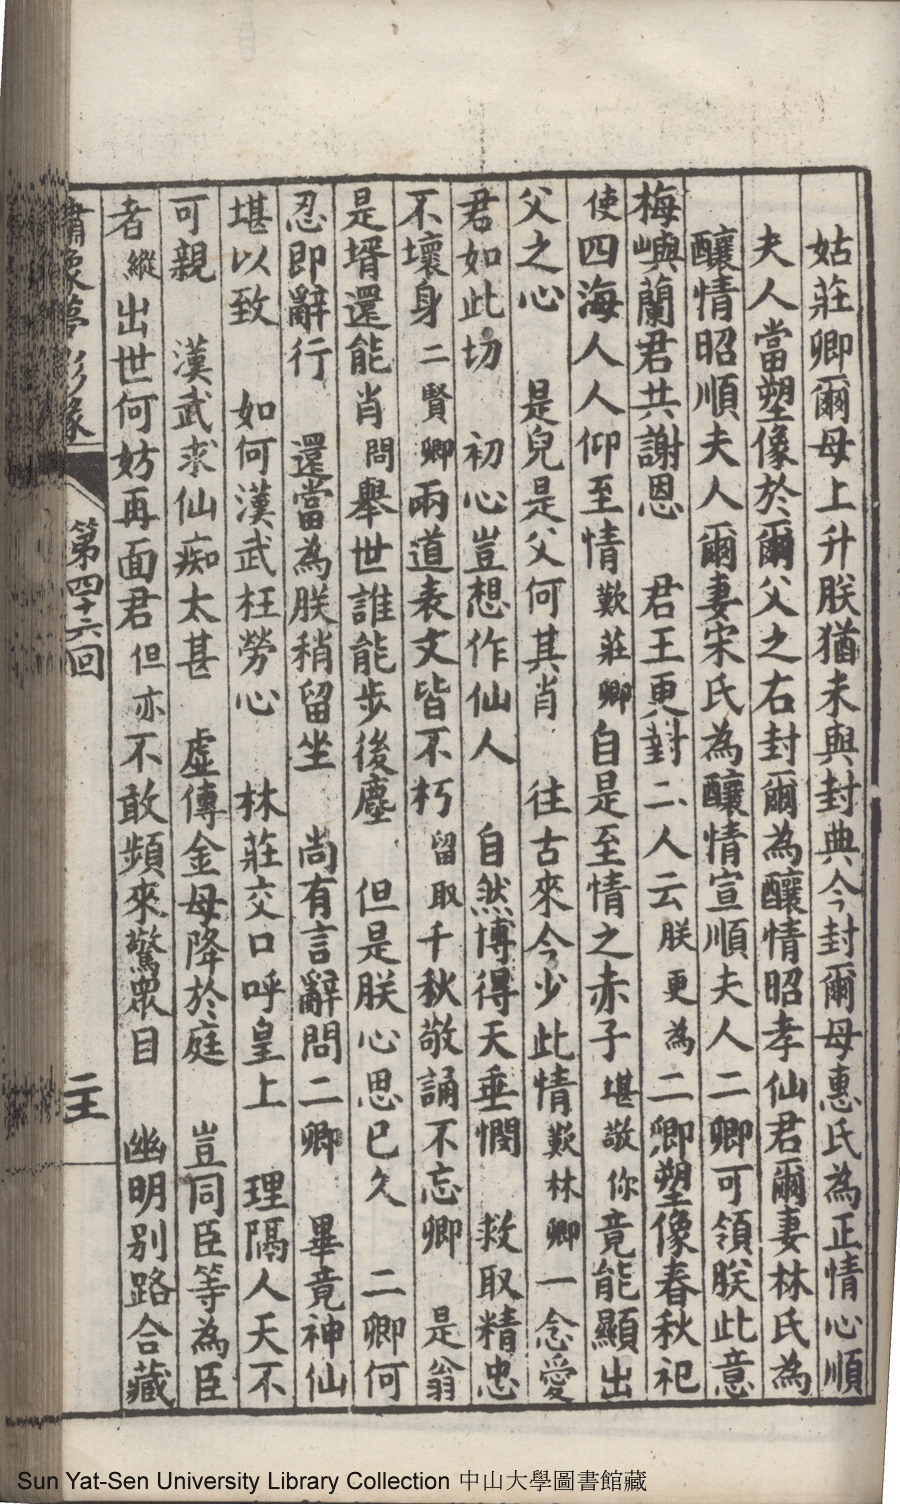 姑莊卿爾母上升朕猶未與封典今封爾母惠氏為正情心順
夫人當塑像於爾父之右封爾為釀情昭孝仙君爾妻林氏為
釀情昭順夫人爾妻宋氏為釀情宣順夫人二卿可領朕此意
梅嶼蘭君共謝恩 君王更對二人云朕更為二卿塑像春秋祀
使四海人人仰至情歎莊卿自是至情之赤子堪敬你竟能顯出
父之心 是兒是父何其肖 往古來今少此情歎林卿一念愛
君如此切 初心豈想作仙人 自然博得天垂憫 救取精忠
不壞身二賢卿兩道表文皆不朽留取千秋敬誦不忘卿 是翁
是壻還能肖問舉世誰能步後塵 但是朕心思已久 二卿何
忍即辭行 還當為朕稍留坐 尚有言辭問二卿 畢竟神仙
堪以致 如何漢武枉勞心 林莊交口呼皇上 理隔人天不
可親 漢武求仙痴太甚 虛傳金母降於庭 豈同臣等為臣
者縱出世何妨再面君但亦不敢頻來驚眾目 幽明別路合藏
夢影緣 第四十六回 二十
Sun Yat-Sen University Library Collection 中山大學圖書館藏